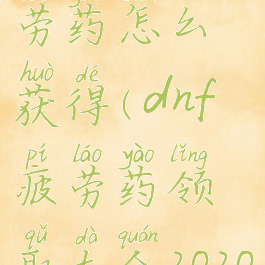 劳药怎么
huò dé
获得(dnf
pí láo yào lǐng
疲劳药领
qǔ dà quán
取大全2020